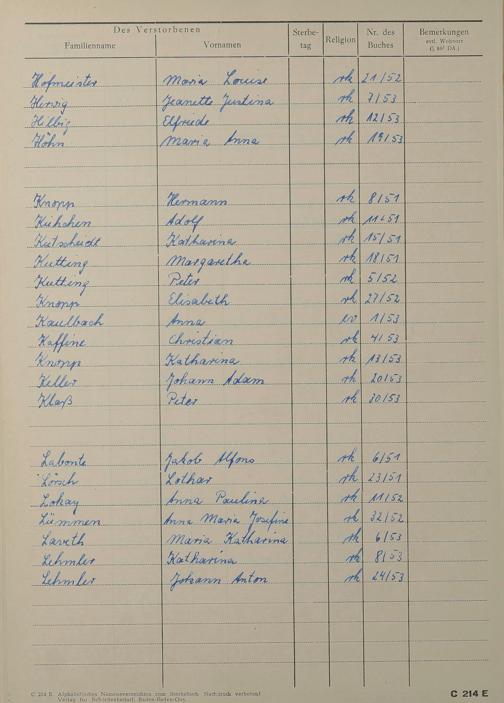 Des Verstorbenen
Familienname Vornamen Sterbe-tag Religion Nr. des Buches Bemerkungen evtl. Wohnort
Hofmeister Maria Louise rk 21/52
Herwig Jeanette Justina rk 7/53
Helbig Elfriede rk 12/53
Höhn Maria Anna rk 19/53
Knopp Hermann rk 8/51
Kühchen Adolf rk 11/51
Kutscheidt Katharina rk 15/51
Kutting Margaretha rk 18/51
Kutting Peter rk 5/52
Knopp Elisabeth rk 27/52
Kaulbach Anna ev 1/53
Kaffine Christian rk 4/53
Knopp Katharina rk 13/53
Keller Johann Adam rk 20/53
Klaß Peter rk 30/53
Labonte Jakob Alfons rk 6/51
Lörsch Lothar rk 23/51
Lohay Anna Paulina rk 11/52
Lümmen Anna Maria Josefine rk 32/52
Laveth Maria Katharina rk 6/53
Lehmler Katharina rk 8/53
Lehmler Johann Anton rk 24/53
C 214 E. Alphabetisches Namensverzeichnis zum Sterbebuch. Nachdruck verboten!
Verlag für Behördenbedarf, Baden-Baden-Oos.
C 214 E